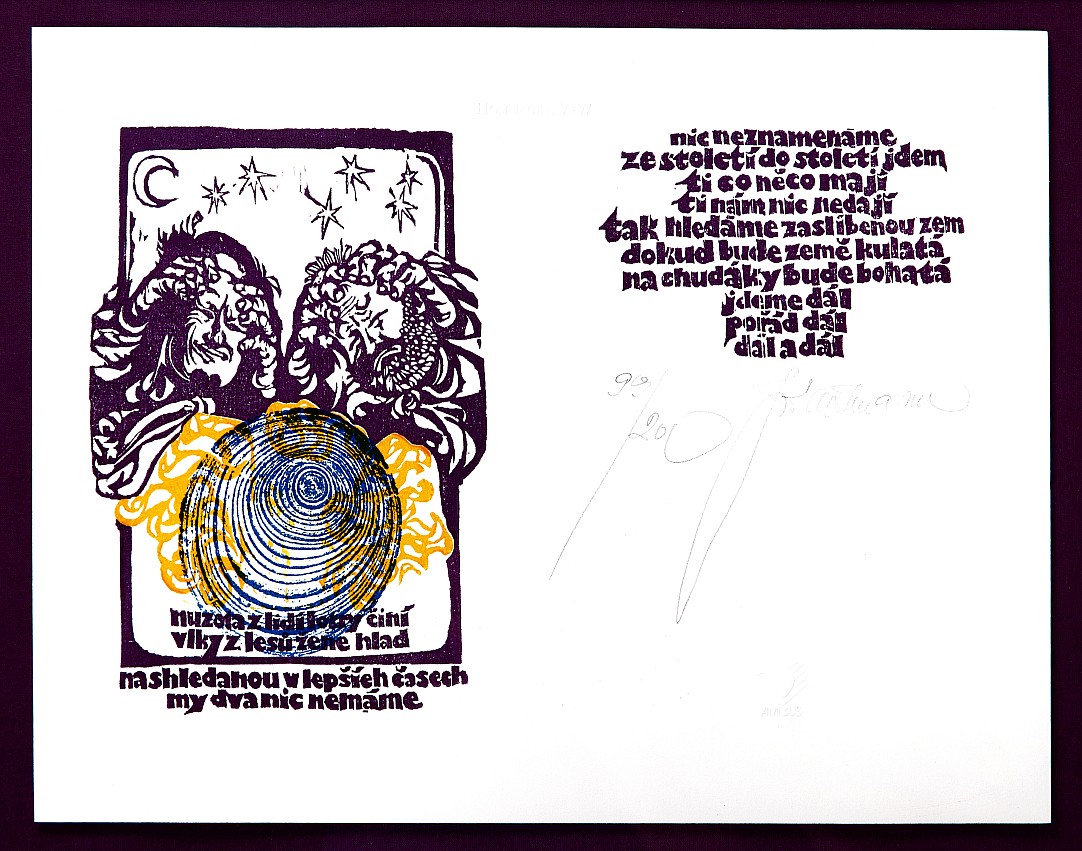 nuzota z lidí lotry činí
vlky z lesů žene hlad
nashledanou v lepších časech
my dva nic nemáme
nic neznamenáme
ze století do století jdem
ti co něco mají
ti nám nic nedají
tak hledáme zaslíbenou zem
dokud bude země kulatá
na chudáky bude bohatá
jdeme dál
pořád dál
dál a dál
90/200